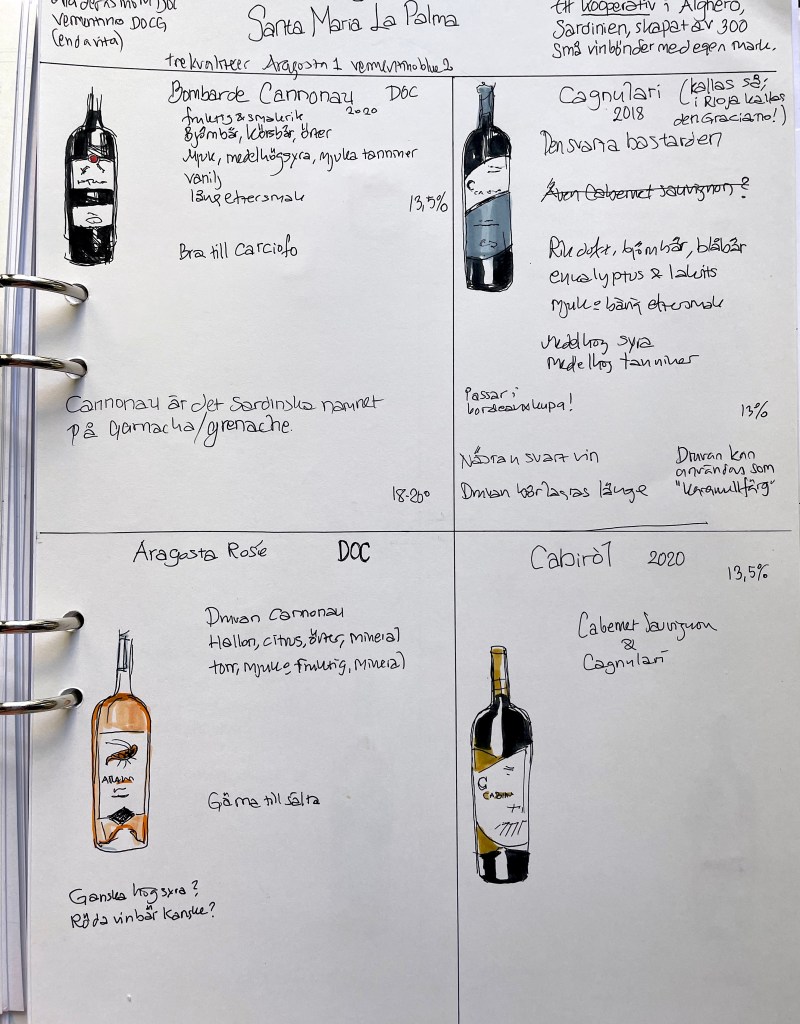 Vermentino DOCG
(enda vita)
Santa Maria La Palma
ett kooperativ i Alghero,
Sardinien, skapat av 300
små vinbönder med egen mark.
tre kvaliteer Aragosta 1 vermentino blue 2
Bombarde Cannonau DOC
2020
fruktig & smakrik
Björnbär, körsbär, örter
Mjuk, medelhög syra, mjuka tanniner
vanilj
lång eftersmak
13,5%
Bra till carciofo
Cannonau är det Sardinska namnet
på Garnacha/grenache.
18-20°
Cagnulari (kallas så;
2018 i Rioja kallas
den Graciano!)
Den svarta bastarden
Även Cabernet Sauvignon?
Rik doft, björnbär, blåbär
eukalyptus & lakrits
mjuk & lång eftersmak
Medelhög syra
Medelhög tanniner
Passar i
bordeauxkupa!
13%
Nästan svart vin
Druvan bör lagras länge
Druvan kan
användas som
"karamellfärg"
Aragosta Rosé DOC
Druvan Cannonau
Hallon, citrus, örter, mineral
torr, mjuk & fruktig, mineral
Gärna till sälta
Ganska hög syra?
Röda vinbär kanske?
Cabiròl 2020
13,5%
Cabernet Sauvignon
&
Cagnulari